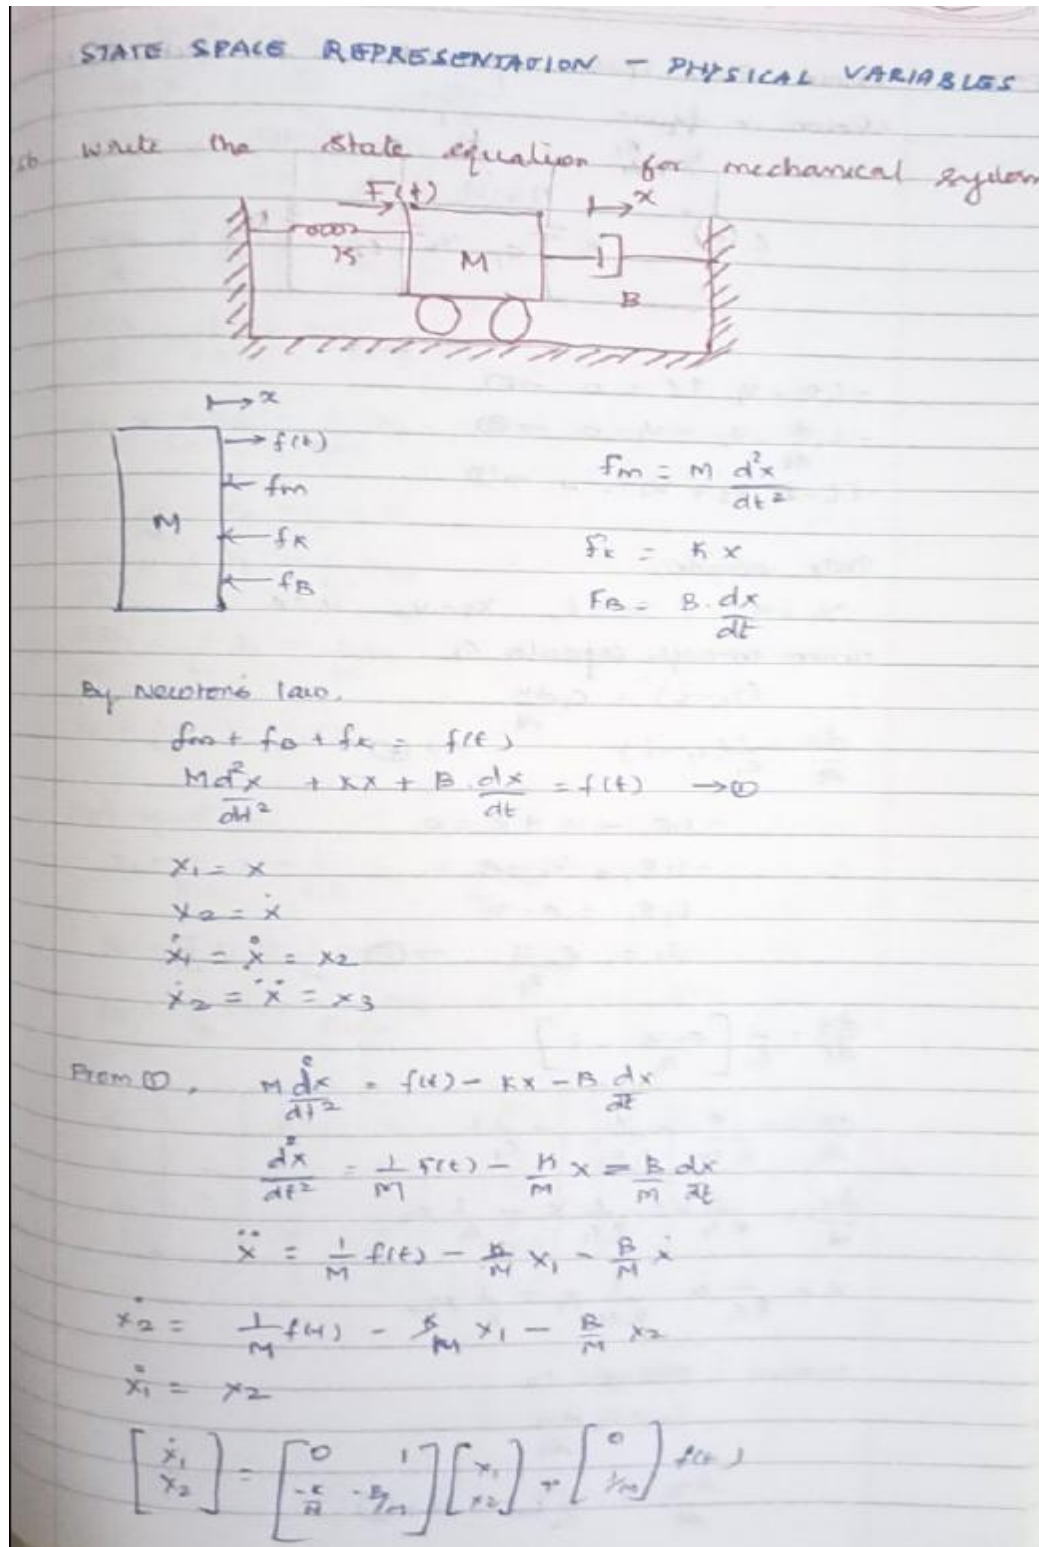 STATE SPACE REPRESENTATION - PHYSICAL VARIABLES
write the state equation for mechanical system
F(t)
x
K
M
B
x
f(t)
fm
M
fK
fB
fm = M d²x/dt²
fK = K x
FB = B. dx/dt
By Newton's law,
fm + fB + fK = f(t)
M d²x/dt² + Kx + B. dx/dt = f(t) → ①
x1 = x
x2 = ẋ
ẋ1 = ẋ = x2
ẋ2 = ẍ = x3
From ①, M d²x/dt² = f(t) - Kx - B dx/dt
d²x/dt² = 1/M F(t) - K/M x = B/M dx/dt
ẍ = 1/M f(t) - K/M x1 - B/M ẋ
ẋ2 = 1/M f(t) - K/M x1 - B/M x2
ẋ1 = x2
[ẋ1 ẋ2] = [0 1 -K/M -B/m] [x1 x2] + [0 1/m] f(t)